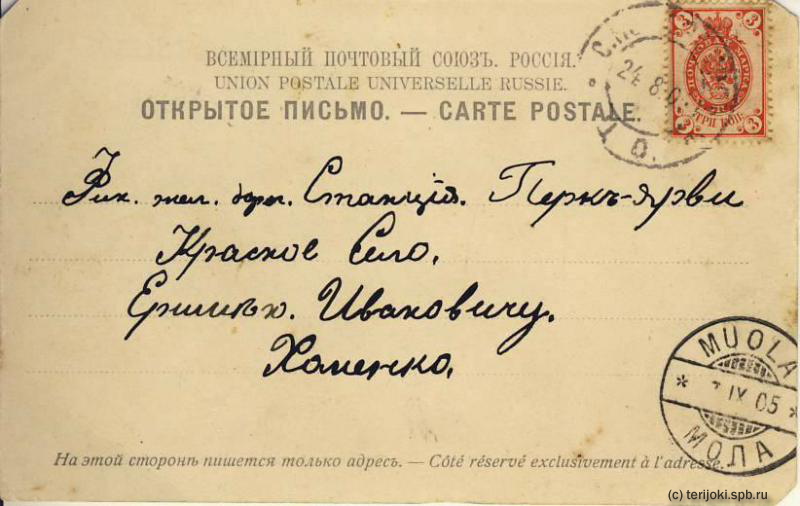 ВСЕМІРНЫЙ ПОЧТОВЫЙ СОЮЗЪ. РОССІЯ.
UNION POSTALE UNIVERSELLE RUSSIE.
ОТКРЫТОЕ ПИСЬМО. — CARTE POSTALE.
3 3
ПОЧТОВАЯ МАРКА
ТРИ КОП.
3 3
24 8 0
Фин. жел. дорог. Станція. Перкъ-ярви
Красное Село,
Ивановичу.
Хоменко.
MUOLA
IX 05
МОЛА
На этой сторонѣ пишется только адресъ. — Côté réservé exclusivement à l'adresse.
(c) terijoki.spb.ru